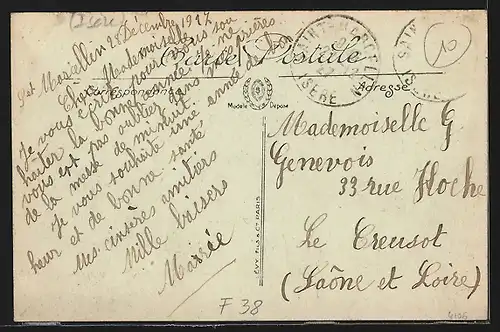 (Isère)
St Marcellin 28 Décembre 1917
Chère Mademoiselle
Je vous écris pour vous sou
haiter la bonne année. Je ne
vous est pas oublier dans mes prières
de la messe de minuit.
Je vous souhaite une année de bon
heur et de bonne santé
Mes sincères amitiers
Mille baisers
Marcée
Carte Postale
Correspondance
Adresse
Modèle Déposé
SAINT-MARCELLIN
ISÈRE
SAIN
10
LÉVY FILS & Cie PARIS
Mademoiselle G
Genevois
33 rue Hoche
Le Creusot
(Saône et Loire)
F 38